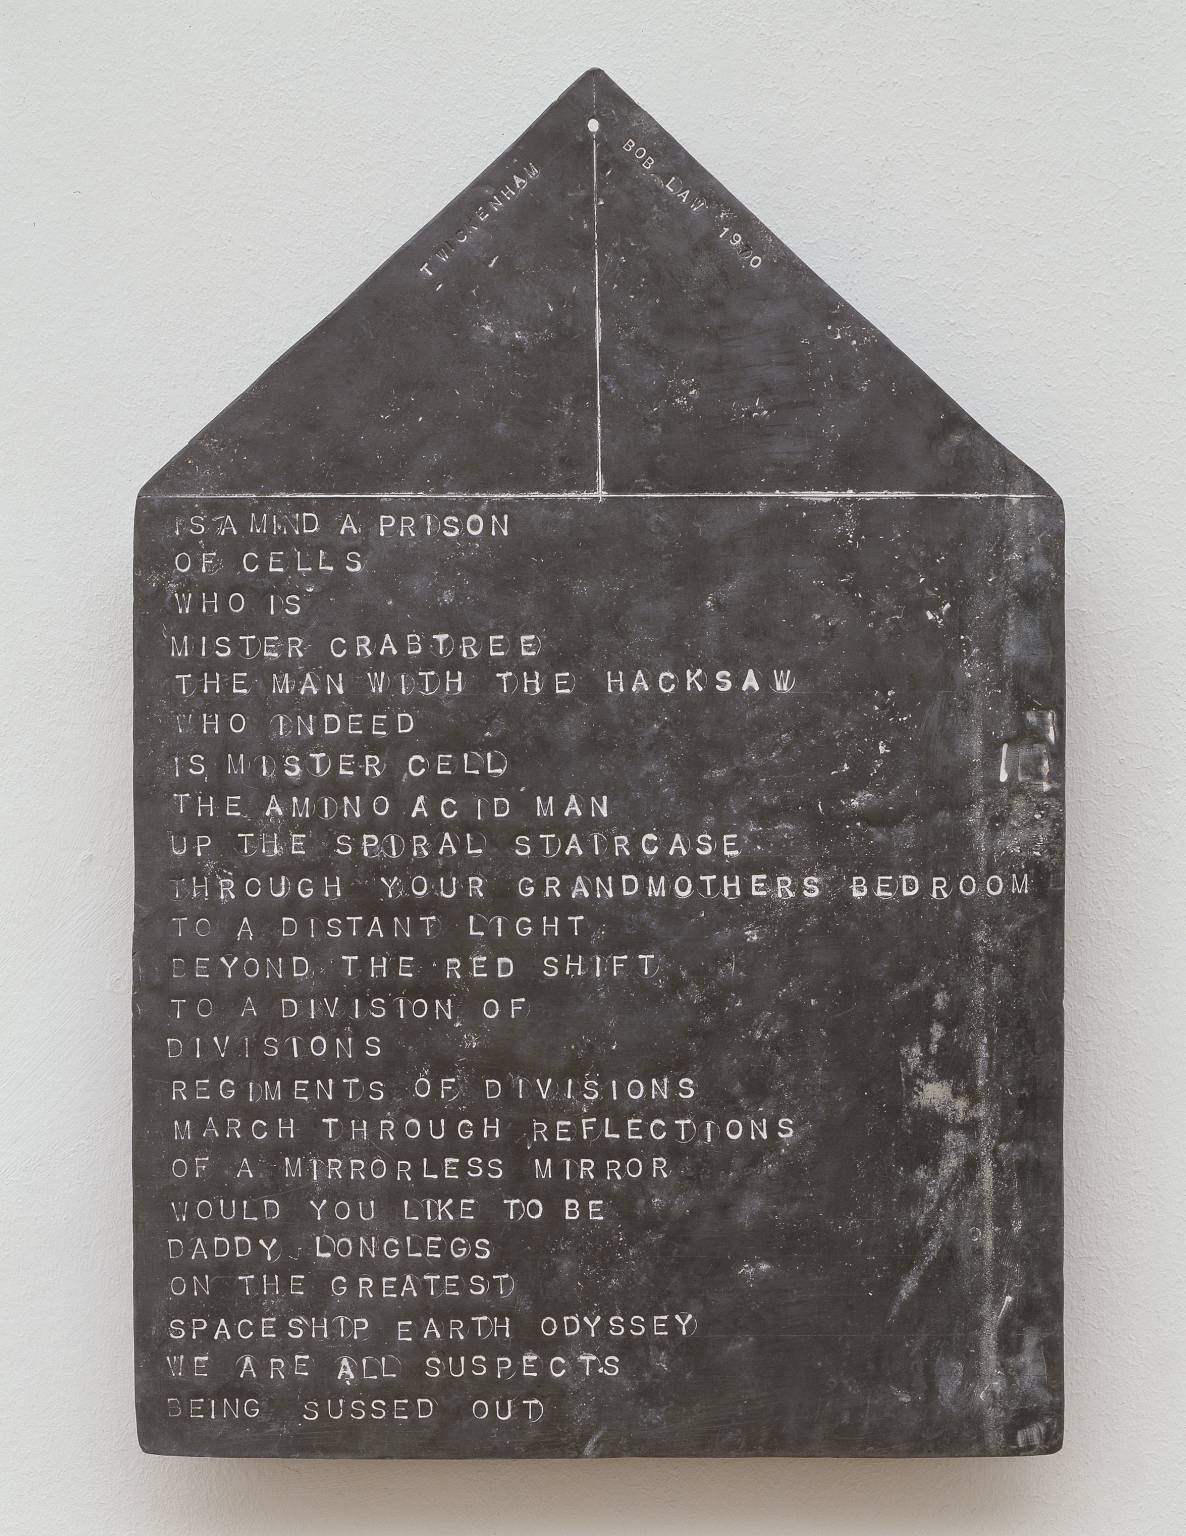 TWICKENHAM
BOB LAW 1970
IS A MIND A PRISON
OF CELLS
WHO IS
MISTER CRABTREE
THE MAN WITH THE HACKSAW
WHO INDEED
IS MISTER CELL
THE AMINO ACID MAN
UP THE SPIRAL STAIRCASE
THROUGH YOUR GRANDMOTHERS BEDROOM
TO A DISTANT LIGHT
BEYOND THE RED SHIFT
TO A DIVISION OF
DIVISIONS
REGIMENTS OF DIVISIONS
MARCH THROUGH REFLECTIONS
OF A MIRRORLESS MIRROR
WOULD YOU LIKE TO BE
DADDY LONGLEGS
ON THE GREATEST
SPACESHIP EARTH ODYSSEY
WE ARE ALL SUSPECTS
BEING SUSSED OUT